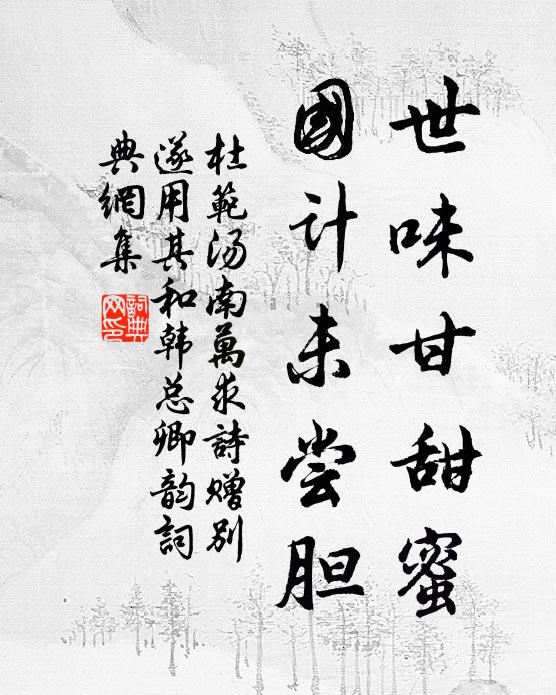 世味甘甜蜜
國计未尝胆
杜範汤南萬求詩赠别
遂用其和韩总卿韵詞
典網集
詞典
网印